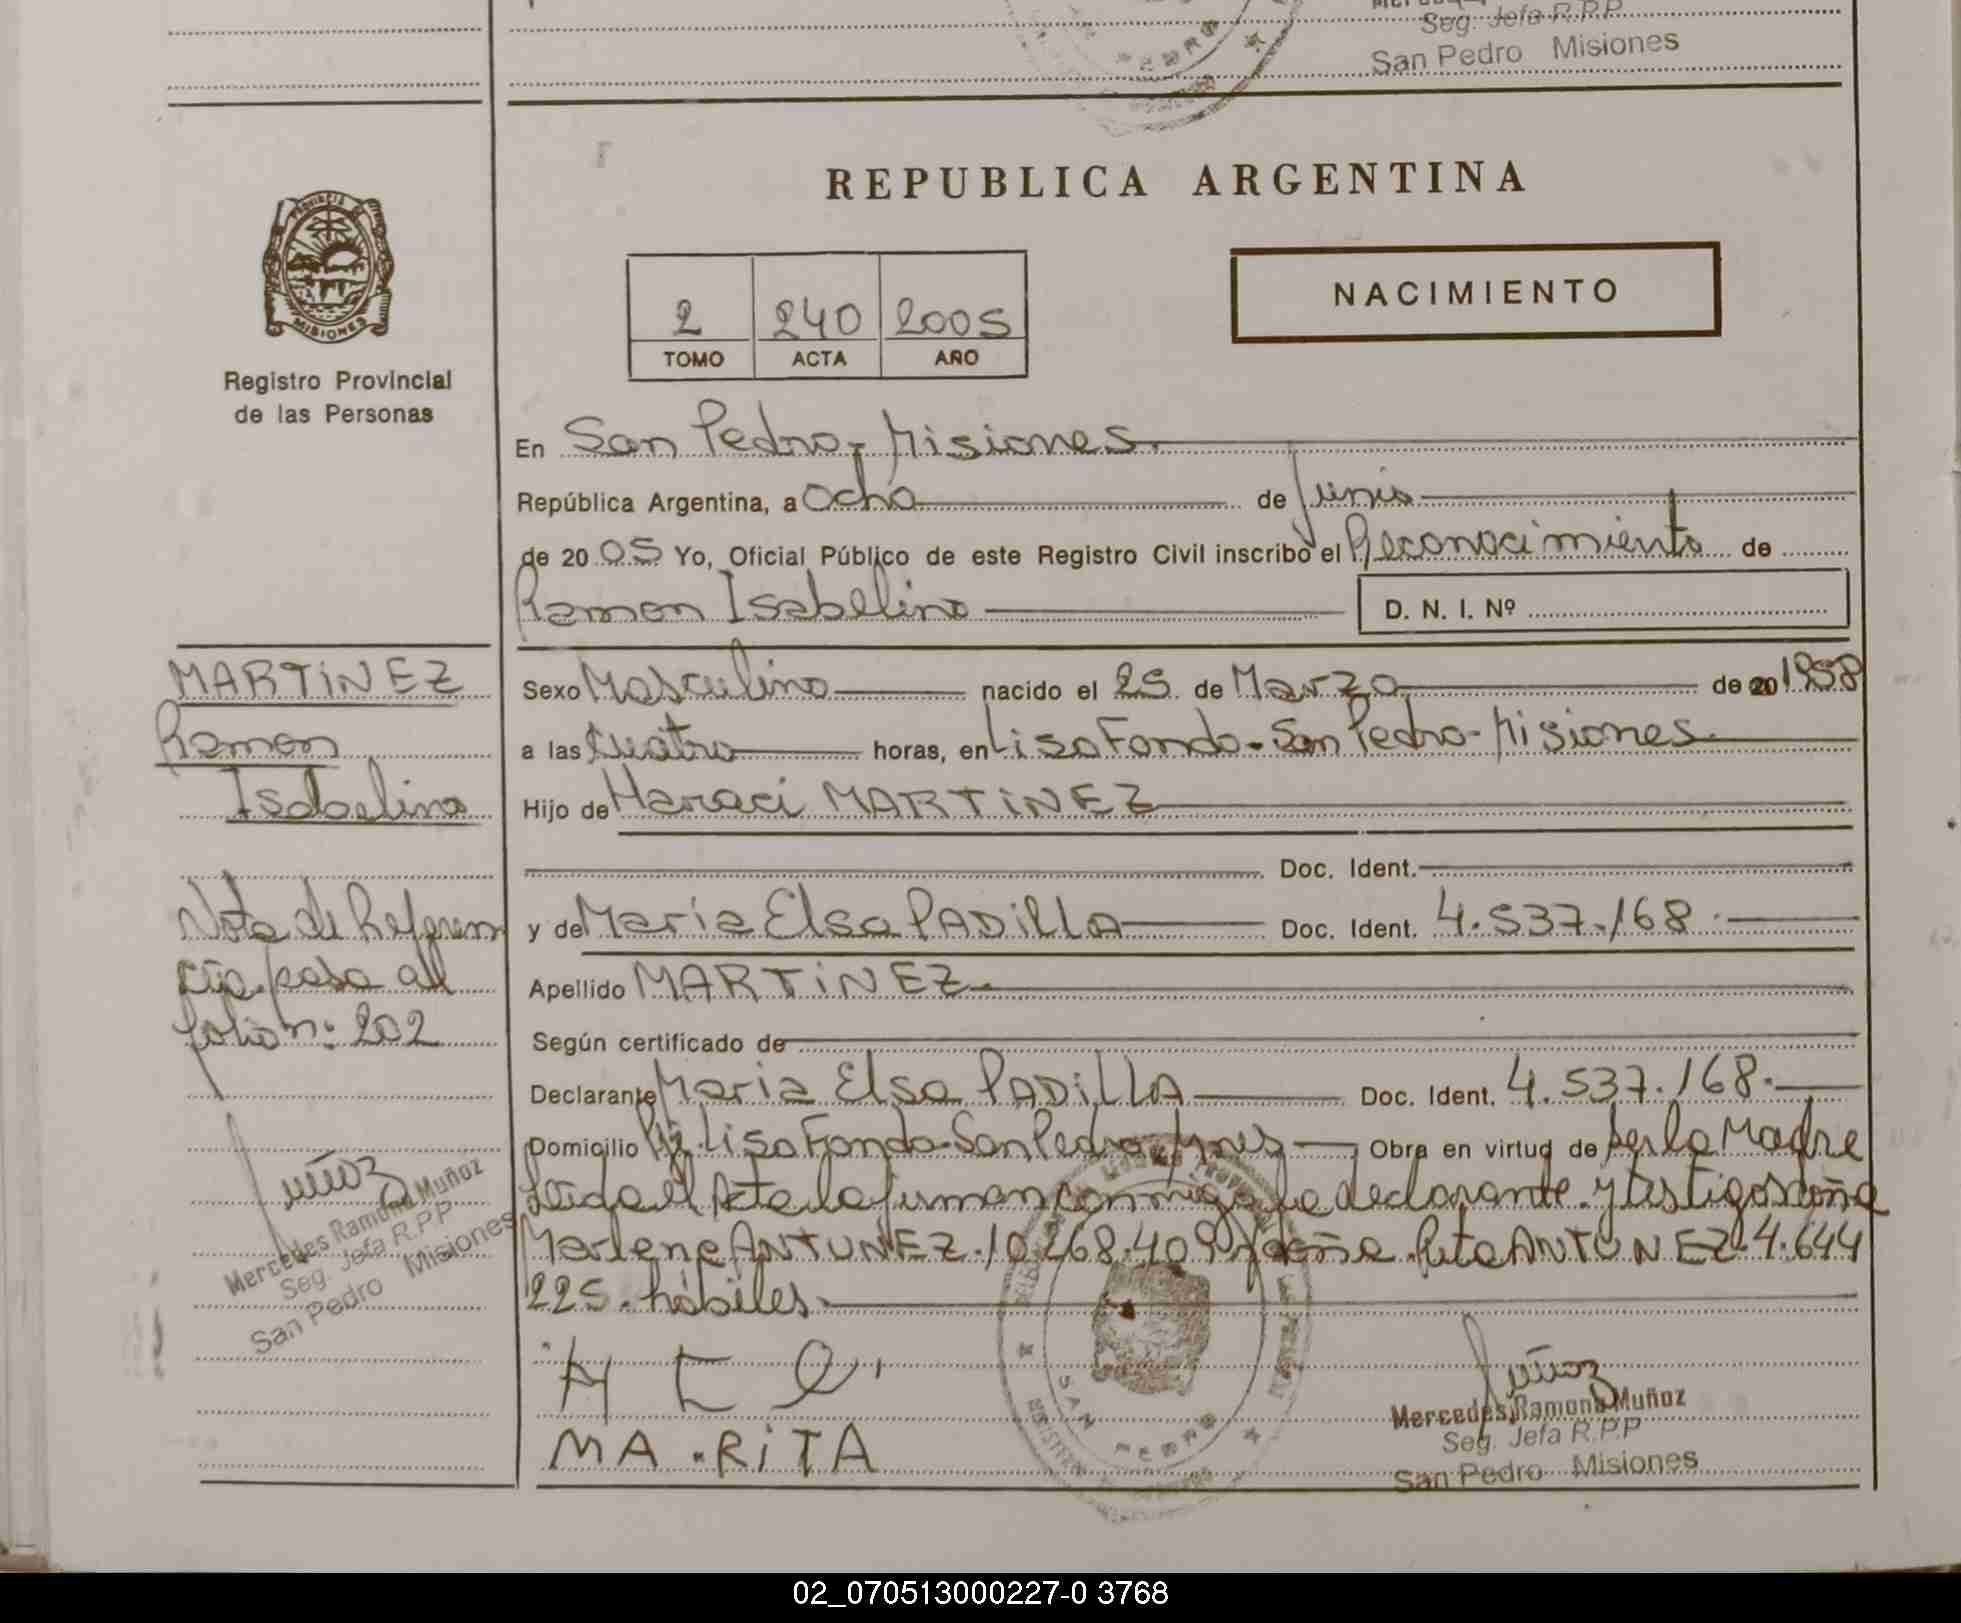 Seg. Jefa R.P.P
San Pedro Misiones
PROVINCIA DE
MISIONES
Registro Provincial
de las Personas
REPUBLICA ARGENTINA
2 240 2005
TOMO ACTA AÑO
NACIMIENTO
En San Pedro - Misiones.
República Argentina, a Ocho de Junio
de 20 05 Yo, Oficial Público de este Registro Civil inscribo el Reconocimiento de
Ramon Isabelino D. N. I. Nº
MARTiNEZ
Ramon
Isabelino
Sexo Masculino nacido el 25 de Marzo de 20 1958
a las Cuatro horas, en Liso Fondo - San Pedro - Misiones.
Hijo de Haraci MARTiNEZ
Doc. Ident.
y de María Elsa PADiLLA Doc. Ident. 4.537.168.
Apellido MARTiNEZ.
Según certificado de
Declarante Maria Elsa PADiLLA Doc. Ident. 4.537.168.
Domicilio Liso Fondo - San Pedro Mnes Obra en virtud de ser la Madre
Leida el Acta la firman conmigo la declarante y testigos doña
Marlene ANTUNEZ. 10.268.409 y doña Rita ANTUNEZ. 4.644
225. hábiles.
Nota de Referen
cia pasa al
folio n: 202
Muñoz
Mercedes Ramona Muñoz
Seg. Jefa R.P.P
San Pedro Misiones
MA.RiTA
SAN PEDRO
Muñoz
Mercedes Ramona Muñoz
Seg. Jefa R.P.P
San Pedro Misiones
02_070513000227-0 3768